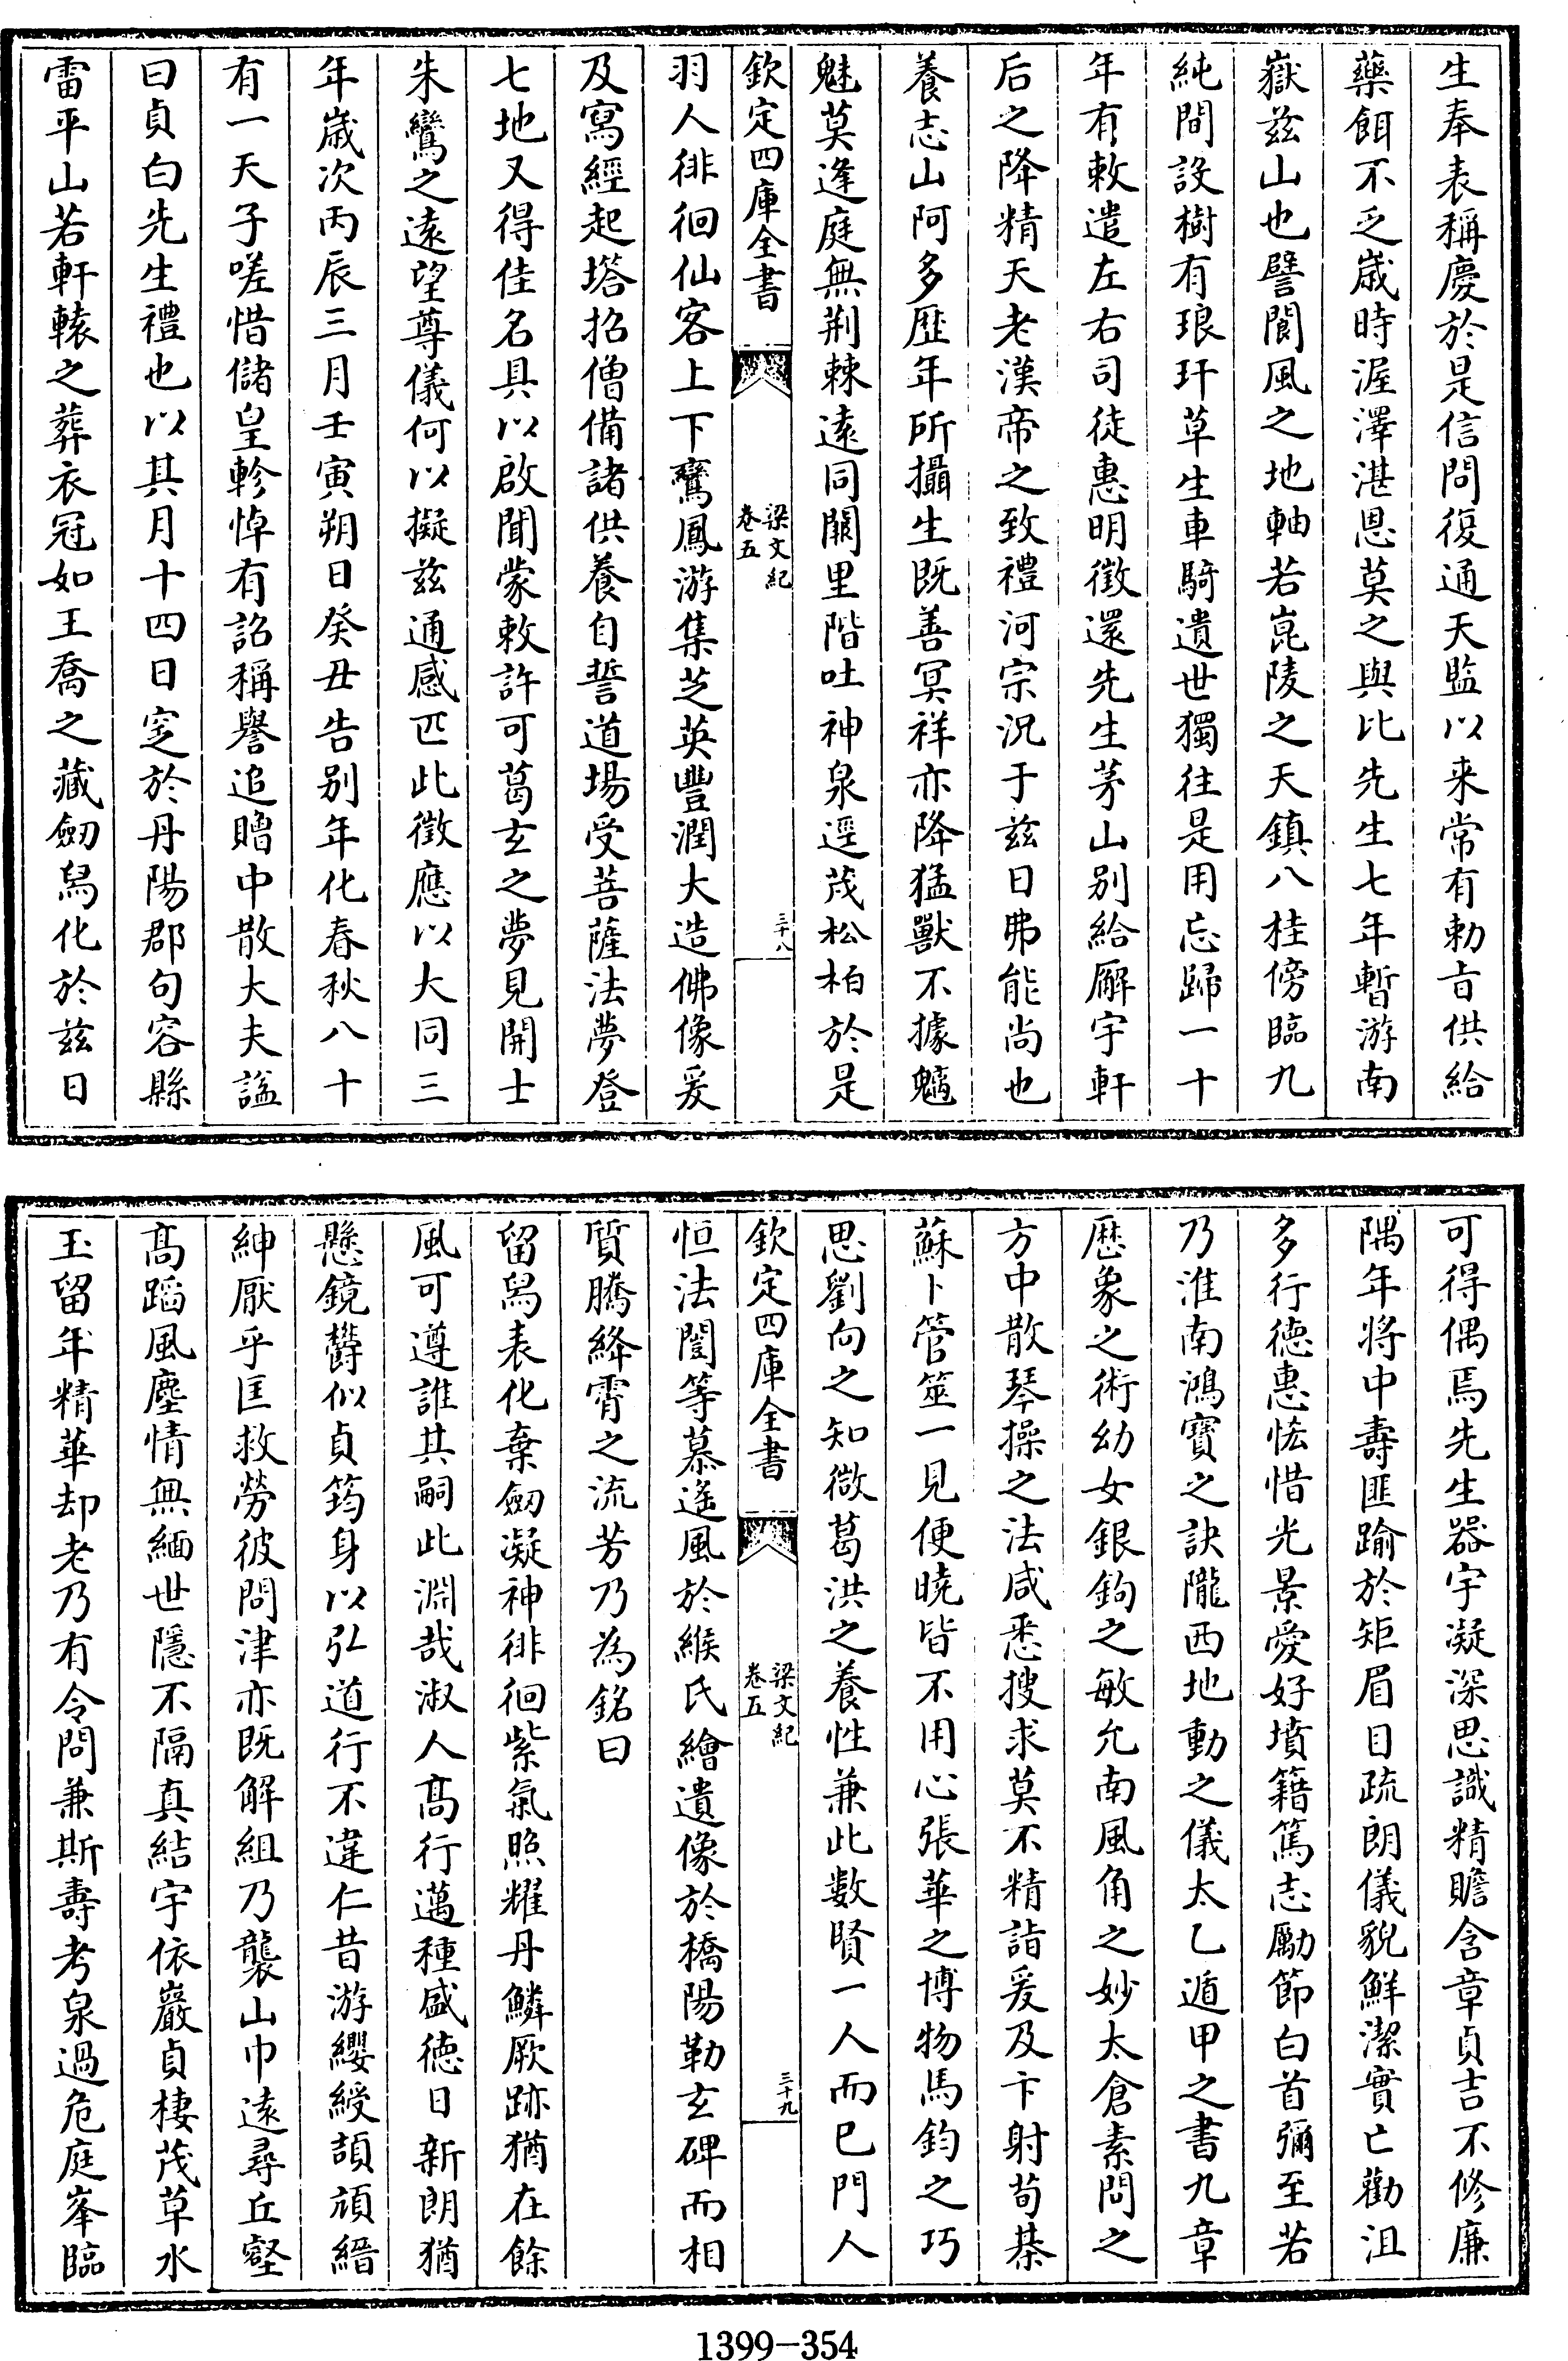 生奉表稱慶於是信問復通天監以来常有勅旨供給
藥餌不乏歲時渥澤湛恩莫之與比先生七年暫游南
嶽茲山也譬閬風之地軸若崑陵之天鎮八桂傍臨九
純間設樹有琅玕草生車騎遺世獨往是用忘歸一十
年有敕遣左右司徒惠明徵還先生茅山别給廨宇軒
后之降精天老漢帝之致禮河宗況于茲日弗能尚也
養志山阿多歷年所攝生既善冥祥亦降猛獸不據魑
魅莫逢庭無荆棘遠同闕里階吐神泉逕茂松柏於是
欽定四庫全書
梁文紀
卷五
三十八
羽人徘徊仙客上下鸞鳳游集芝英豐潤大造佛像爰
及寫經起塔招僧備諸供養自誓道場受菩薩法夢登
七地又得佳名具以啟聞蒙敕許可葛玄之夢見開士
朱鸞之遠望尊儀何以擬茲通感匹此徵應以大同三
年歲次丙辰三月壬寅朔日癸丑告别年化春秋八十
有一天子嗟惜儲皇軫悼有詔稱譽追贈中散大夫諡
曰貞白先生禮也以其月十四日窆於丹陽郡句容縣
雷平山若軒轅之葬衣冠如王喬之藏劒舄化於茲日
可得偶焉先生器宇凝深思識精贍含章貞吉不修廉
隅年將中壽匪踰於矩眉目疏朗儀貌鮮潔實亡勸沮
多行德惠恡惜光景愛好墳籍篤志勵節白首彌至若
乃淮南鴻寶之訣隴西地動之儀太乙遁甲之書九章
厯象之術幼女銀鉤之敏允南風角之妙太倉素問之
方中散琴操之法咸悉搜求莫不精詣爰及卞射荀棊
蘇卜管筮一見便曉皆不用心張華之博物馬鈞之巧
思劉向之知微葛洪之養性兼此數賢一人而已門人
欽定四庫全書
梁文紀
卷五
三十九
恒法誾等慕遙風於緱氏繪遺像於橋陽勒玄碑而相
質騰絳霄之流芳乃為銘曰
留舄表化棄劒凝神徘徊紫氣照耀丹鱗厥跡猶在餘
風可遵誰其嗣此淵哉淑人髙行邁種盛徳日新朗猶
懸鏡欝似貞筠身以弘道行不違仁昔游纓綬頡頏縉
紳厭乎匡救勞彼問津亦既解組乃襲山巾遠尋丘壑
髙蹈風塵情無緬世隱不隔真結宇依巖貞棲茂草水
玉留年精華却老乃有令問兼斯壽考泉過危庭峯臨
1399-354